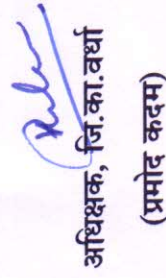 अधिक्षक, जि.का.वर्धा
(प्रमोद कदम)